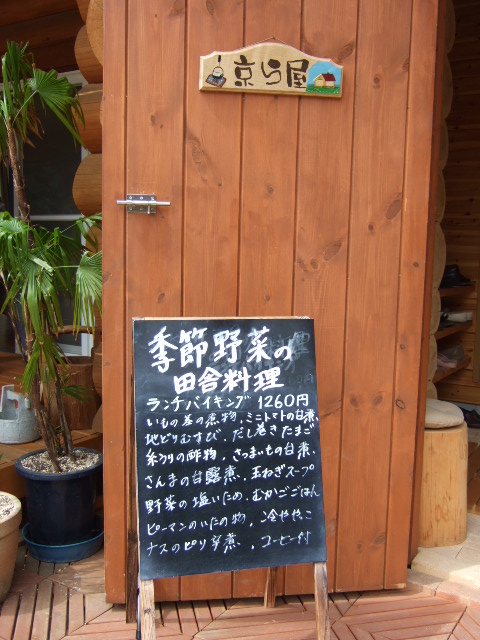 京ら屋
季節野菜の
田舎料理
ランチバイキング 1260円
いもの茎の煮物、ミニトマトの甘煮、
地どりむすび、だし巻きたまご
糸うりの酢物、さつまいもの甘煮、
さんまの甘露煮、玉ねぎスープ
野菜の塩いため、むかごごはん
ピーマンのいため物、冷ややっこ
ナスのピリ辛煮、コーヒー付